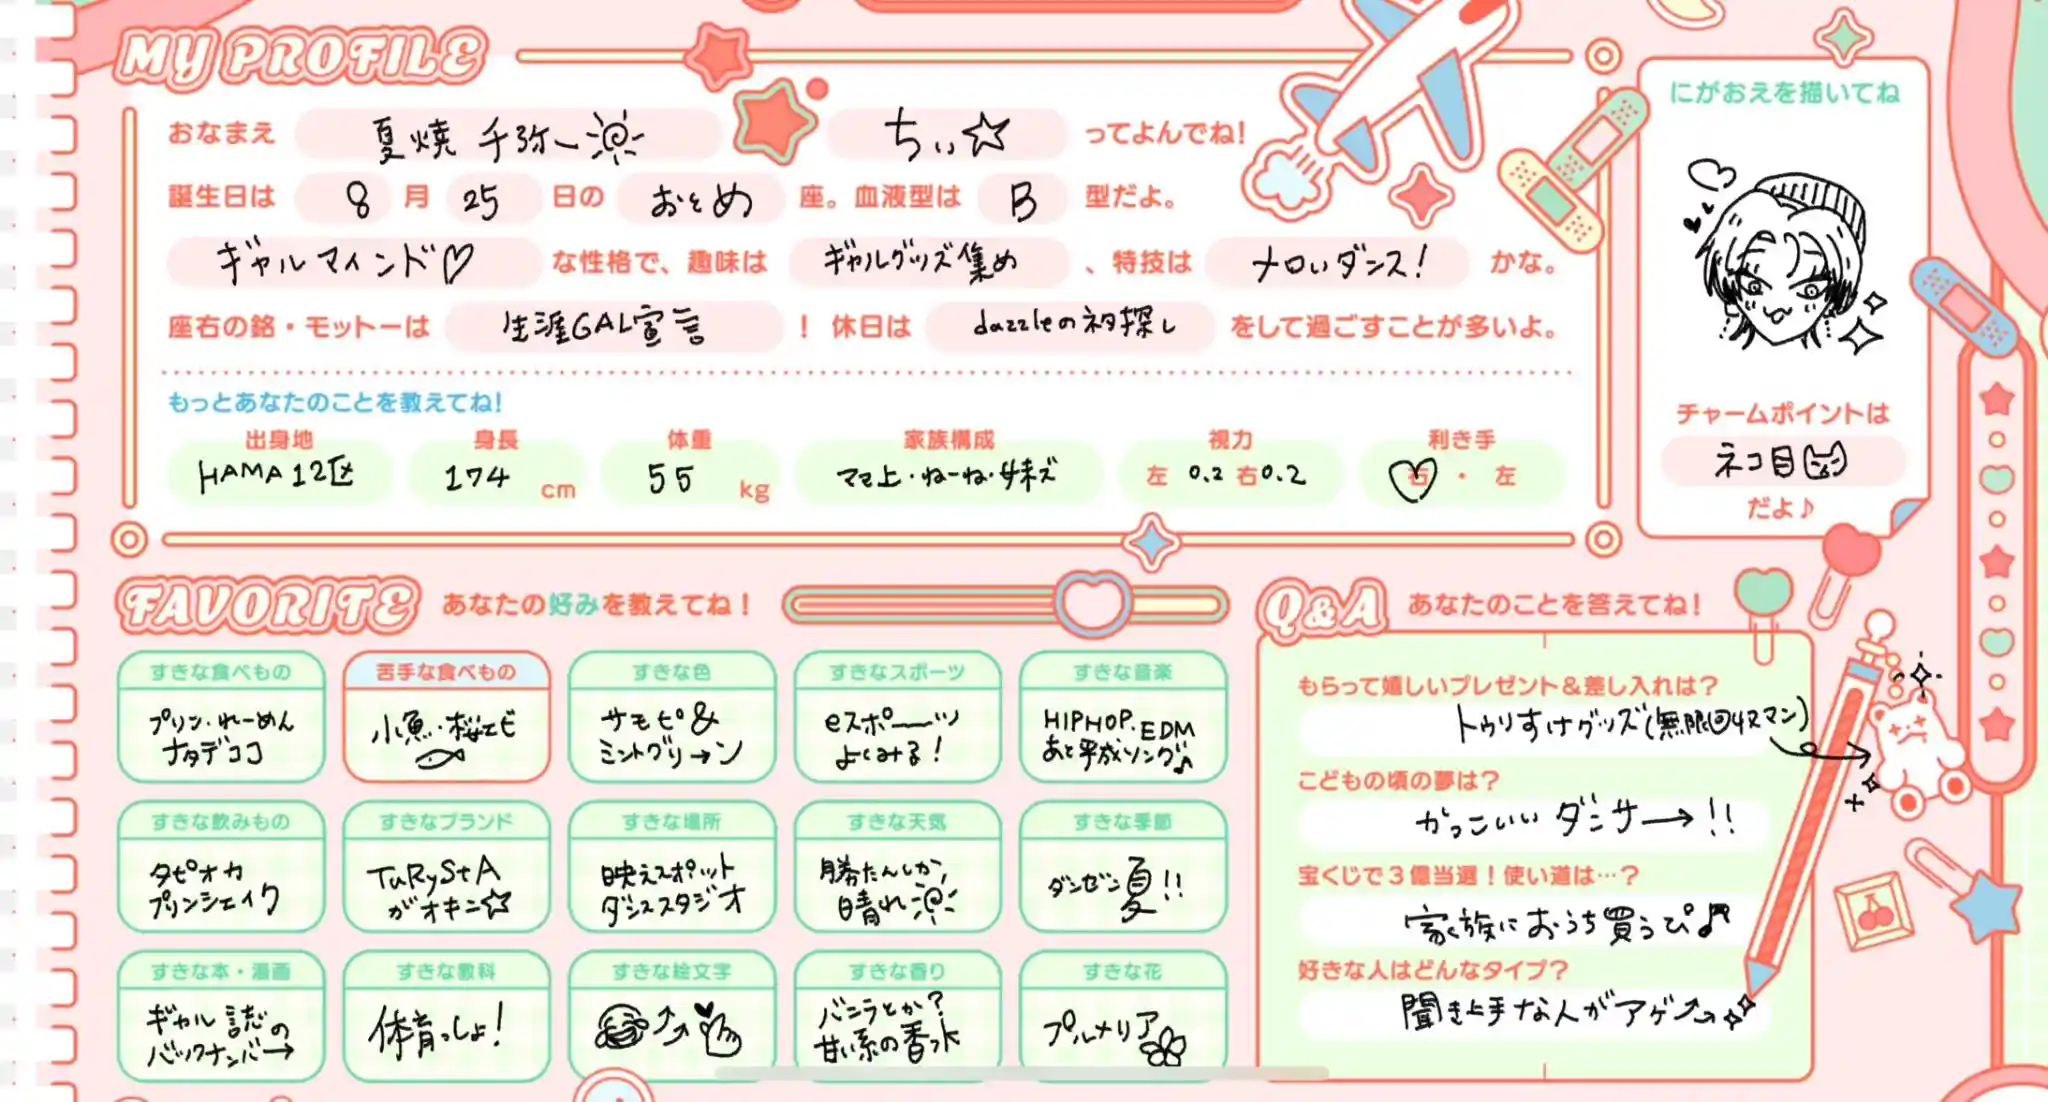 MY PROFILE
おなまえ 夏焼 千弥 ちぃ☆ ってよんでね!
誕生日は 8 月 25 日の おとめ 座。血液型は B 型だよ。
ギャルマインド♡ な性格で、趣味は ギャルグッズ集め 、特技は メロいダンス! かな。
座右の銘・モットーは 生涯GAL宣言 ! 休日は dazzleのネタ探し をして過ごすことが多いよ。
もっとあなたのことを教えてね!
出身地 身長 体重 家族構成 視力 利き手
HAMA12区 174 cm 55 kg ママ上・ねーね・妹ズ 左 0.2 右 0.2 右 ・ 左
にがおえを描いてね
チャームポイントは
ネコ目
だよ♪
FAVORITE あなたの好みを教えてね!
すきな食べもの
プリン・れーめん
ナタデココ
苦手な食べもの
小魚・桜エビ
すきな色
サモピ&
ミントグリ→ン
すきなスポーツ
eスポーーツ
よくみる!
すきな音楽
HIPHOP.EDM
あと平成ソング♪
すきな飲みもの
タピオカ
プリンシェイク
すきなブランド
TuRyStA
がオキニ☆
すきな場所
映えスポット
ダンススタジオ
すきな天気
勝たんしか、
晴れ
すきな季節
ダンゼン夏!!
すきな本・漫画
ギャル誌の
バックナンバ→
すきな教科
体育っしょ!
すきな絵文字
すきな香り
バニラとか?
甘い系の香水
すきな花
プルメリア
Q&A あなたのことを答えてね!
もらって嬉しいプレゼント&差し入れは?
トゥりすけグッズ(無限回収マン)
こどもの頃の夢は?
かっこいい ダンサ→!!
宝くじで3億当選!使い道は…?
家族におうち買うぴ♪
好きな人はどんなタイプ?
聞き上手な人がアゲ